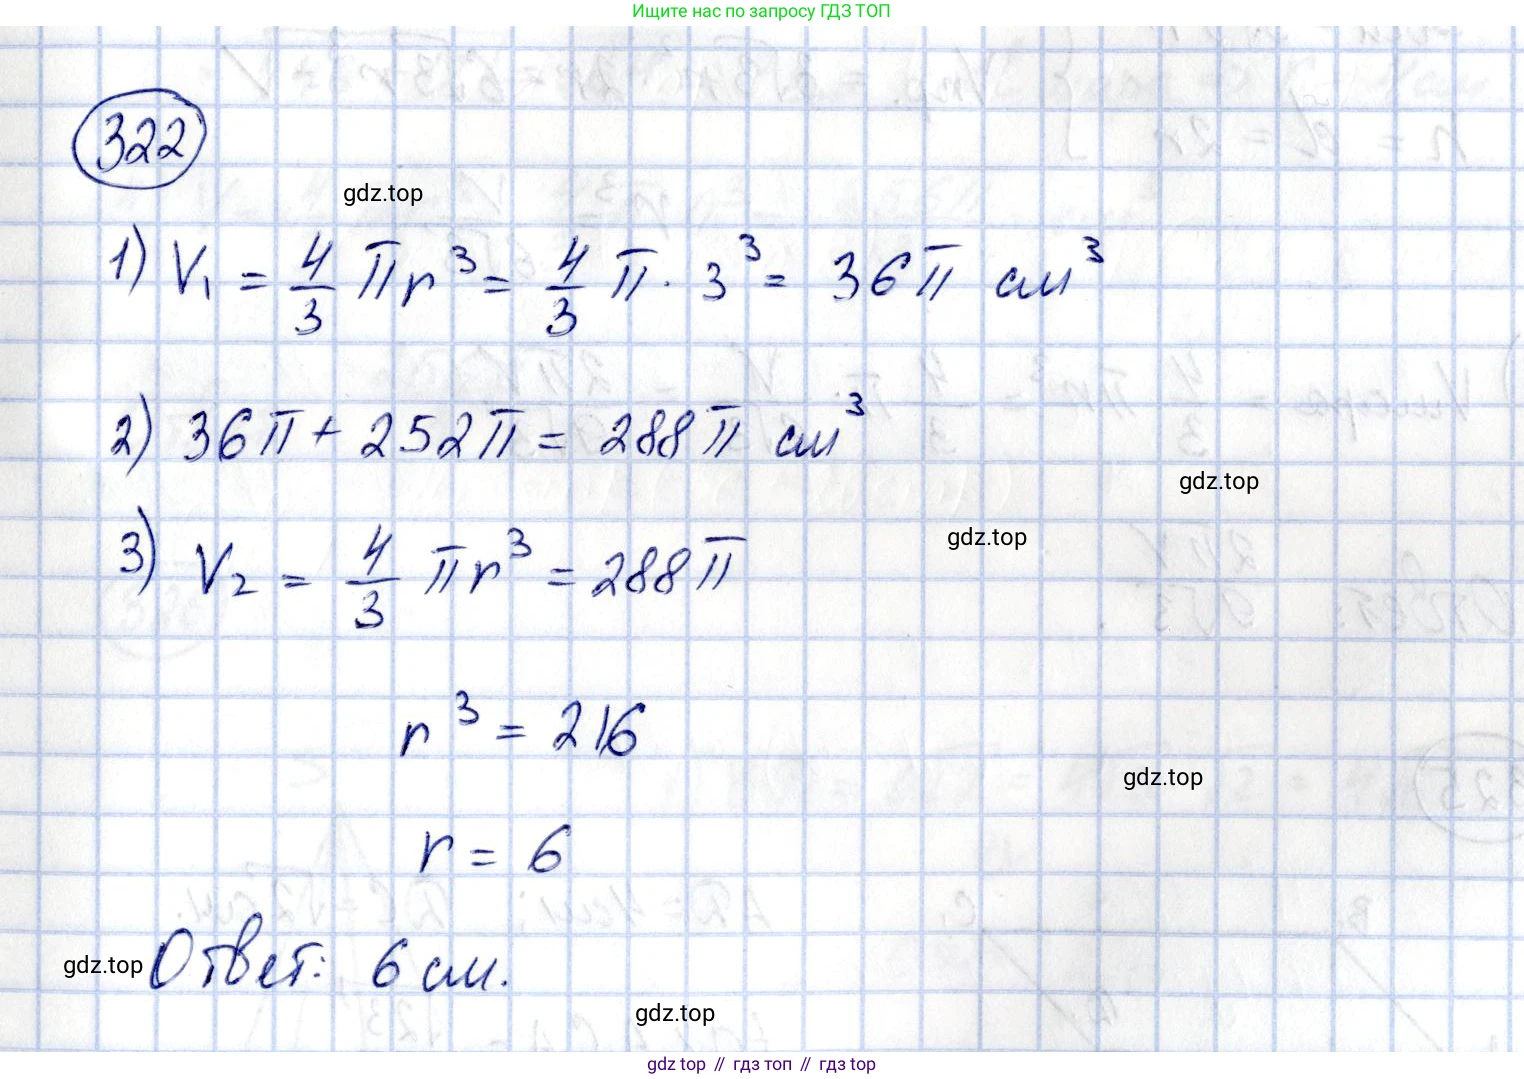 Ищите нас по запросу ГДЗ ТОП
322
gdz.top
1) V₁ = 4/3 πr³ = 4/3 π · 3³ = 36π см³
2) 36π + 252π = 288π см³
gdz.top
gdz.top
3) V₂ = 4/3 πr³ = 288π
r³ = 216
gdz.top
r = 6
gdz.top
Ответ: 6 см.
gdz.top
gdz top // гдз топ // гдз top